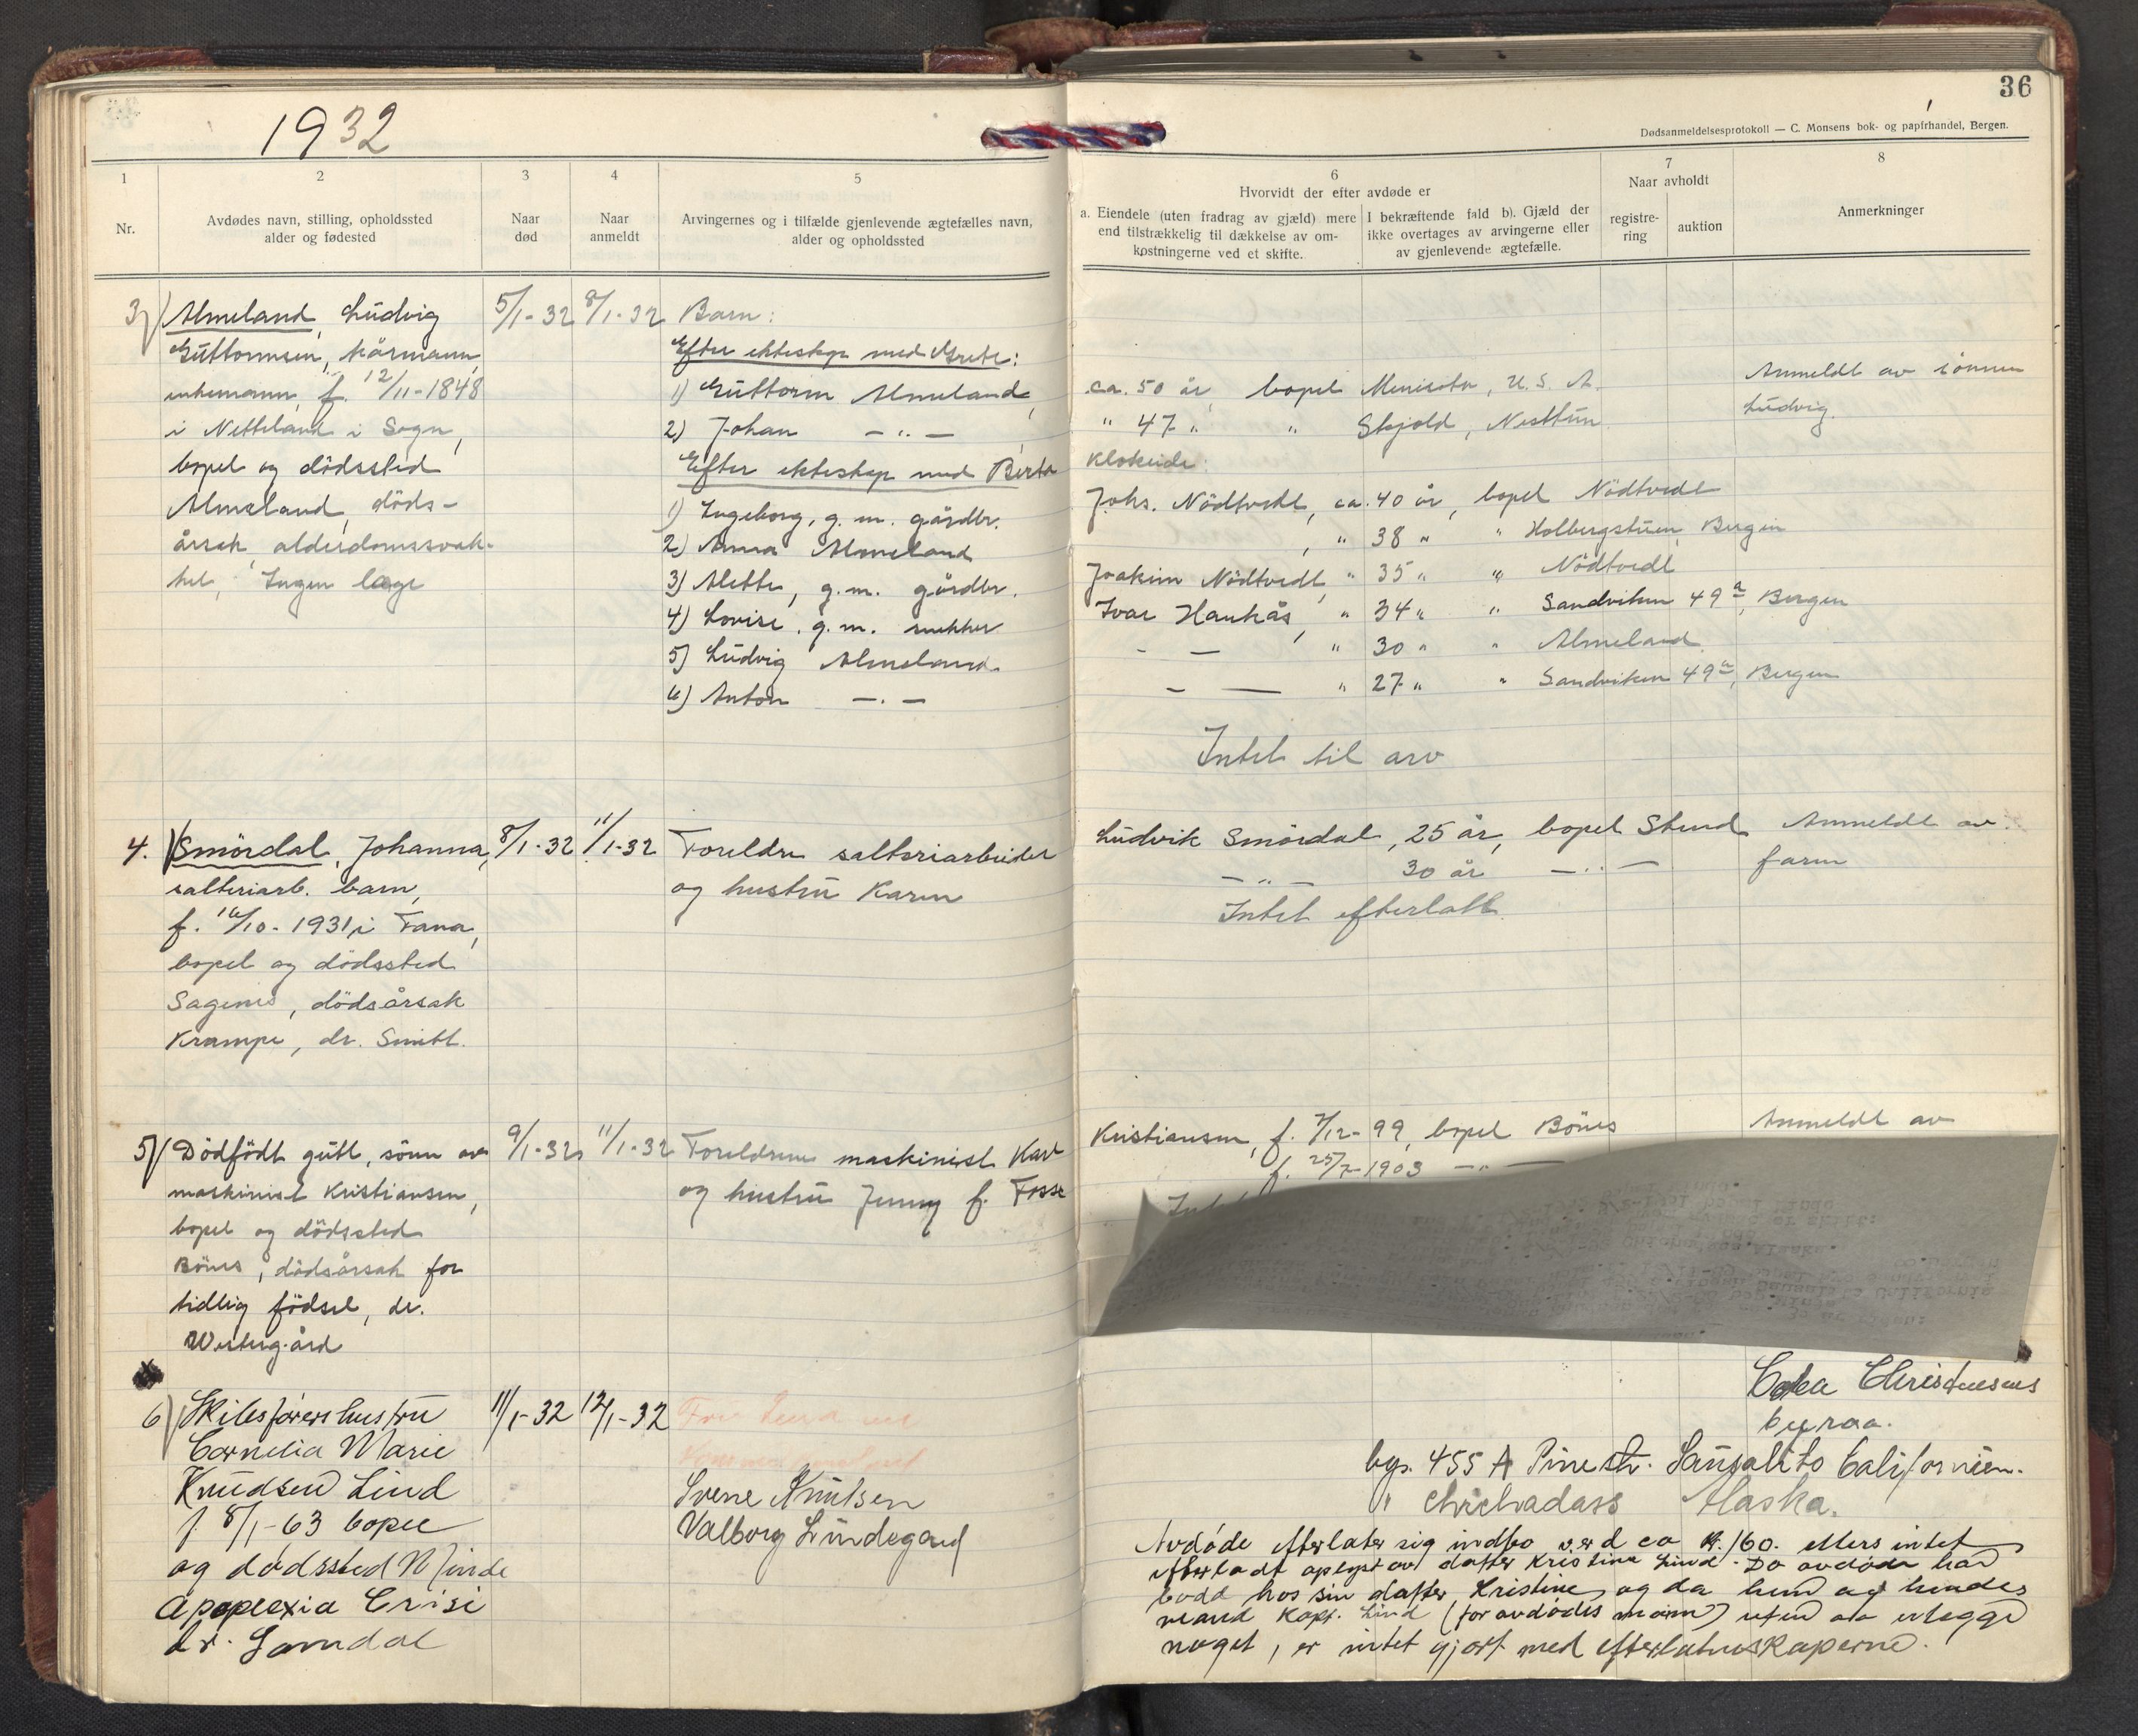 1932
36
Dødsanmeldelsesprotokoll — C. Monsens bok- og papirhandel, Bergen.
1
Nr.
2
Avdødes navn, stilling, opholdssted
alder og fødested
3
Naar
død
4
Naar
anmeldt
5
Arvingernes og i tilfælde gjenlevende ægtefælles navn,
alder og opholdssted
6
Hvorvidt der efter avdøde er
a. Eiendele (uten fradrag av gjæld) mere
end tilstrækkelig til dækkelse av om-
kostningerne ved et skifte.
I bekræftende fald b). Gjæld der
ikke overtages av arvingerne eller
av gjenlevende ægtefælle.
7
Naar avholdt
registre-
ring
auktion
8
Anmerkninger
3) Almeland, Ludvig
Guttormsen, kårmann,
enkemann, f. 12/11-1848
i Netteland i Sogn,
bopel og dödssted
Almeland, döds-
årsak alderdomssvak-
het, Ingen læge
5/1-32
8/1-32
Barn:
Efter ekteskap med Grete:
1) Guttorm Almeland, ca. 50 år, bopel Menisota, U.S.A.
2) Johan —"— , " 47 " " Skjold, Nesttun
Efter ekteskap med Berta Klokeide:
1) Ingeborg, g. m. gårdbr. Johs. Nödtvedt, ca. 40 år, bopel Nödtvedt
2) Anna Almeland , " 38 " " Holbergstuen, Bergen
3) Alette, g.m. gårdbr. Joakim Nödtvedt, " 35 " " Nödtvedt
4) Lovise, g.m. snekker Ivar Haukås, " 34 " " Sandviken 49a, Bergen
5) Ludvig Almeland - — " 30 " " Almeland
6) Anton —"— - — " 27 " " Sandviken 49a, Bergen
Intet til arv
Anmeldt av sönnen
Ludvig.
4. Smördal, Johanna,
salteriarb. barn,
f. 16/10-1931 i Fana,
bopel og dödssted
Sagenes, dödsårsak
Krampe, dr. Smitt.
8/1-32
11/1-32
Foreldre salteriarbeider Ludvik Smördal, 25 år, bopel Stend
og hustru Karen —"— 30 år —"—
Intet efterlatt.
Anmeldt av
faren
5) Dödfödt gutt, sönn av
maskinist Kristiansen,
bopel og dödssted
Bönes, dödsårsak for
tidlig födsel, dr.
Westergård
9/1-32
11/1-32
Foreldrene maskinist Karl Kristiansen, f. 7/12-99, bopel Bönes
og hustru Jenny f. Fosse f. 25/7-1903 —"—
Anmeldt av
6) Skibsförers hustru
Cornelia Marie
Knudsen Lind
f. 8/1-63 bopel
og dødssted Minde
Apoplexia Crisi
dr. Lomdal
11/1-32
12/1-32
Christensens
byraa.
Sverre Knutsen bop. 455 A Pine str. Sausalito Californien.
Valborg Lindegard " Alaska.
Avdøde efterlater sig indbo værd ca kr. 160. ellers intet
efterladt oplyst av datter Kristine Lind. Da avdøde har
bodd hos sin datter Kristine, og da hun og hendes
mand Kapt. Lind (for avdødes mann) uten aa erlegge
noget, er intet gjort med efterlatenskaperne.